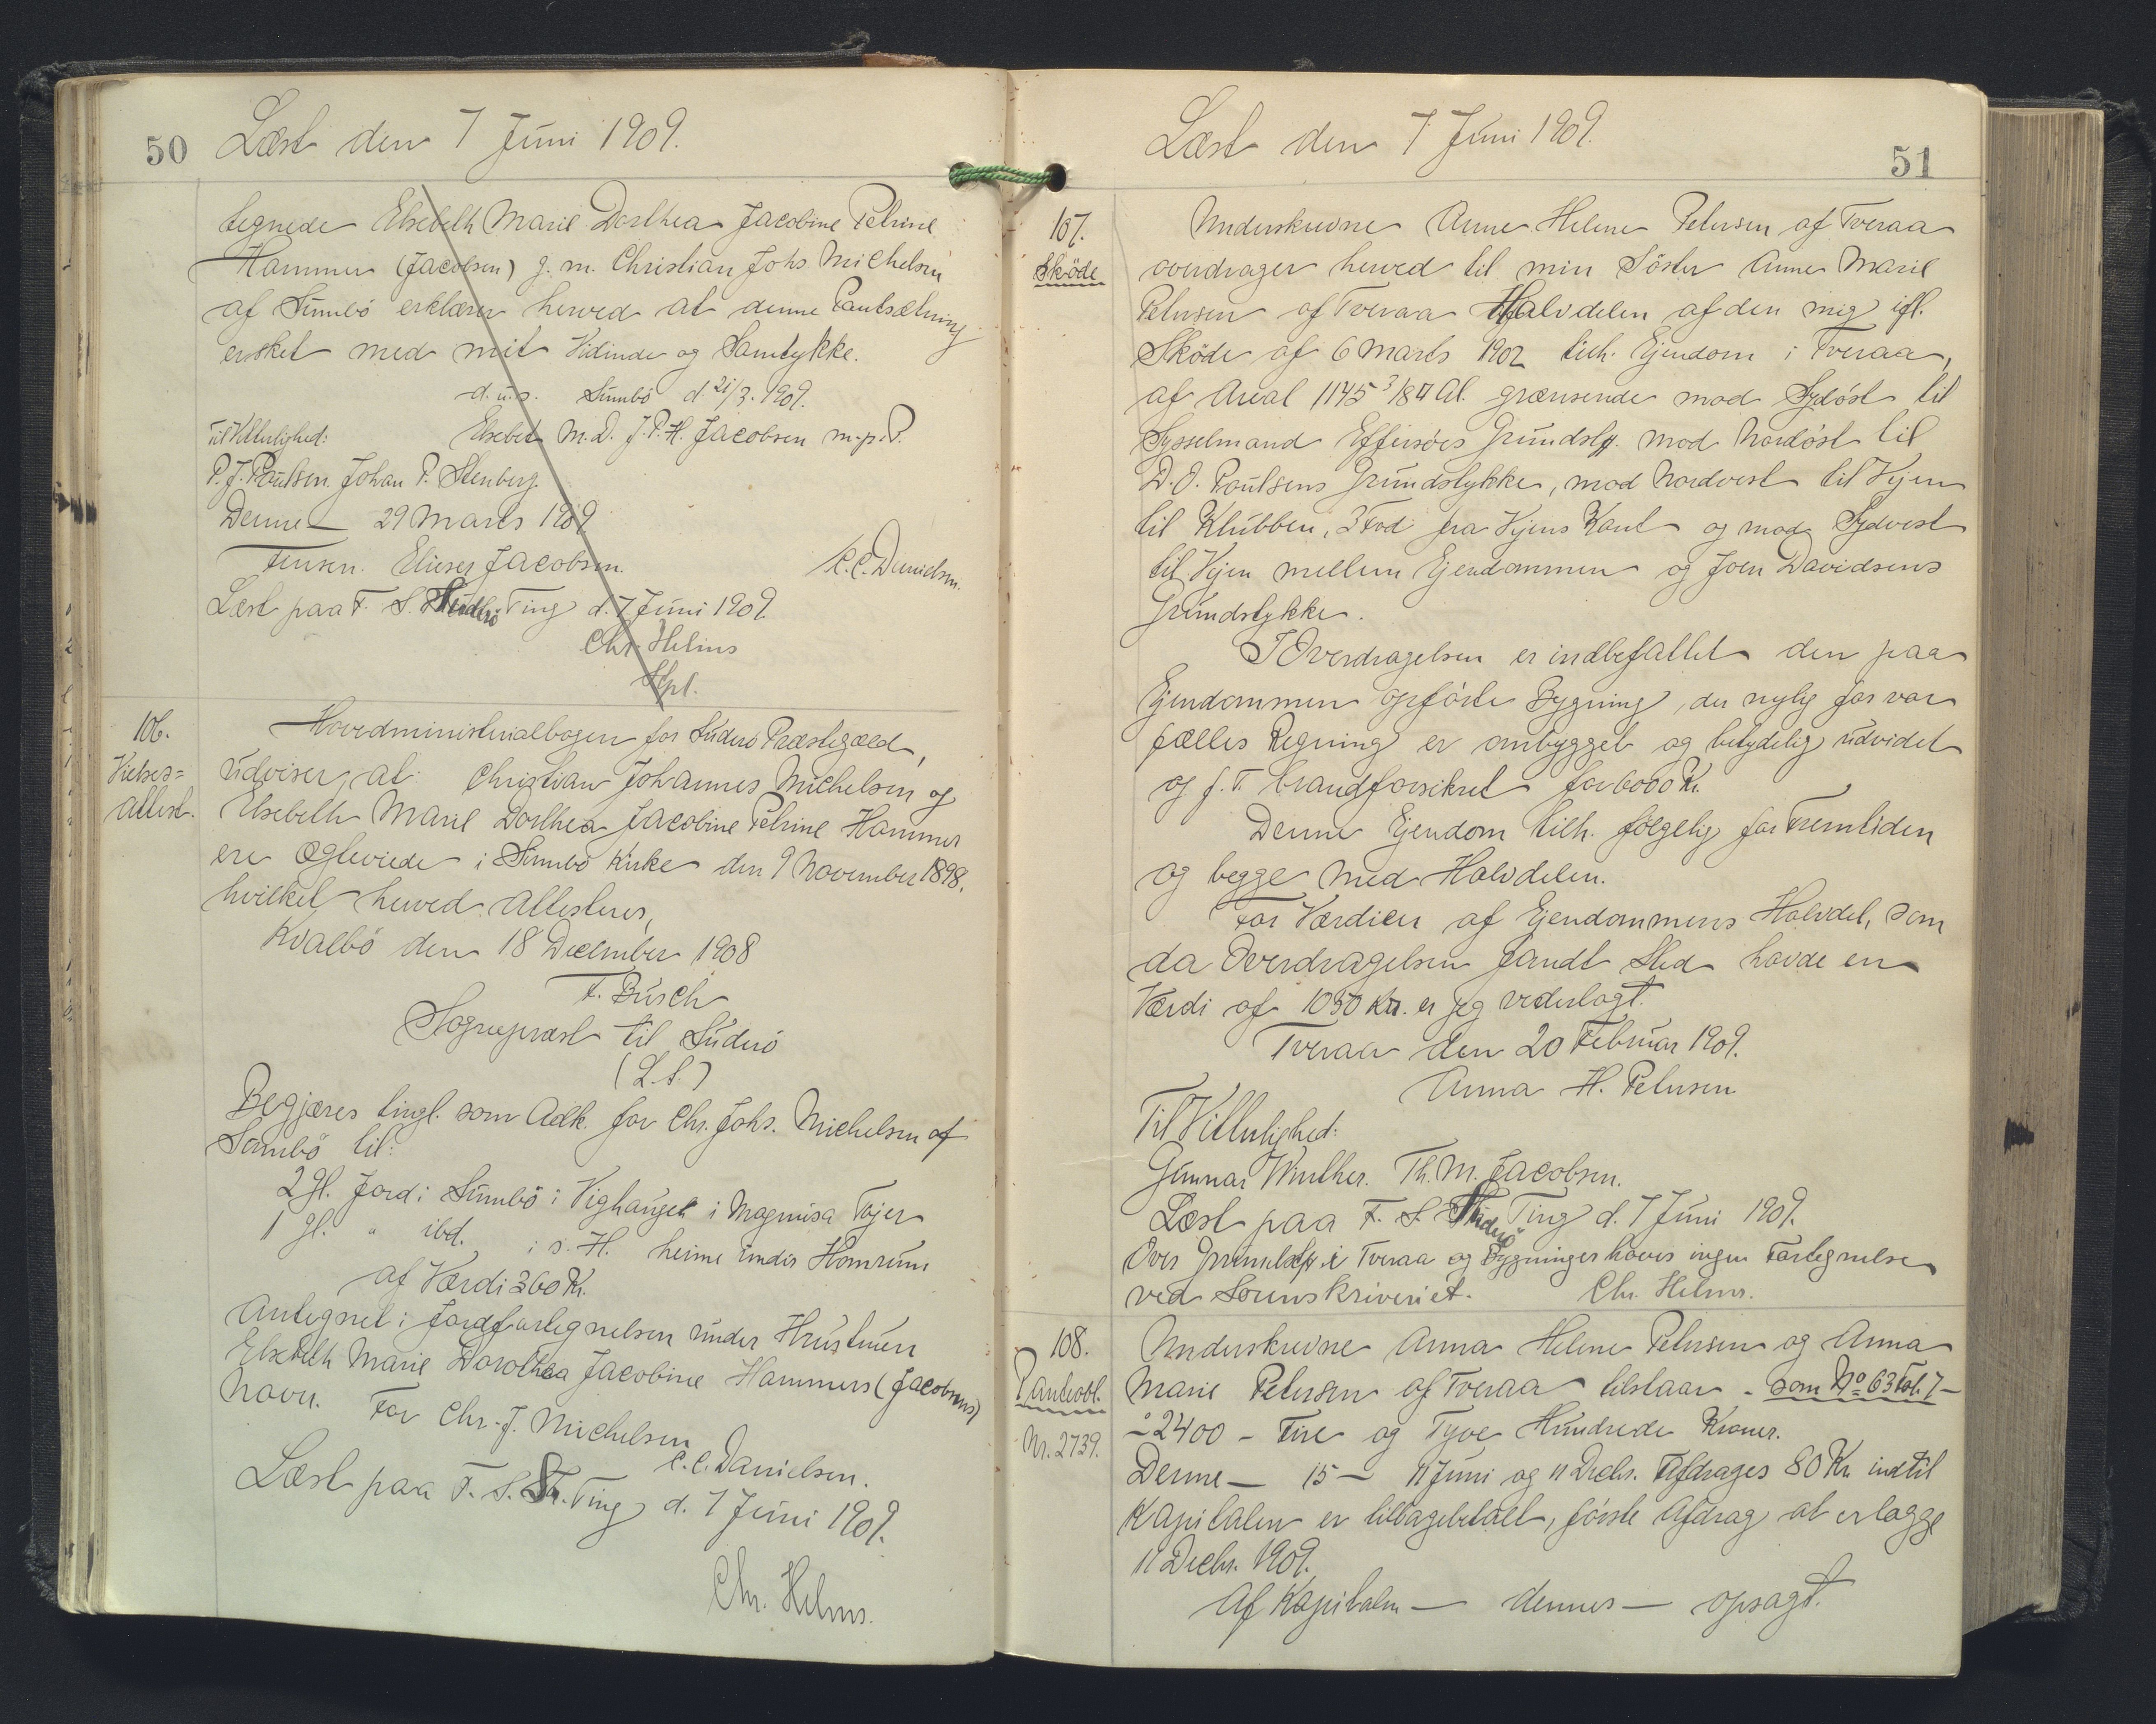 50 Læst den 7 Juni 1909.
tegnede Elsebeth Marie Dorthea Jacobine Petrine
Hammer (Jacobsen) g. m. Christian Johs Michelsen
af Sumbö erklærer herved at denne Pantsætning
er sket med mit Vidinde og Samtykke.
d. u. s. Sumbö d. 21/3. 1909.
Til Vitterlighed: Elsebet M. D. J. P. H. Jacobsen m. p. P.
P. J. Poulsen. Johan P. Stenberg.
Denne — 29 Marts 1909
Jensen. Elieser Jacobsen. C. C. Danielsen.
Læst paa F. S. Suderö Ting d. 7 Juni 1909.
Chr. Helms
Kpt.
106.
Vielses=
attest.
Hovedministerialbogen for Suderö Præstegæld,
udviser, at: Christian Johannes Michelsen og
Elsebeth Marie Dorthea Jacobine Petrine Hammer
ere ægteviede i Sumbö Kirke den 9 November 1898.
hvilket herved attesteres,
Kvalbö den 18 December 1908
F. Busch
Sognepræst til Suderö
(L. S.)
Begjæres tingl. som Adk. for Chr. Johs. Michelsen af
Sumbö til:
2 Gl. Jord i Sumbö i Vighauget i Magnusa Tojer
1 Gl. " ibd. i s. H. heime under Homrum
af Værdi 360 Kr.
Antegnet i Jordfortegnelsen under Hustruen
Elsebeth Marie Dorothea Jacobine Hammers (Jacobsens)
Navn. For Chr. J. Michelsen
C. C. Danielsen.
Læst paa F. S. Su. Ting d. 7 Juni 1909.
Chr. Helms.
Læst den 7 Juni 1909.
51
107.
Sköde
Underskrevne Anne Helene Petersen af Tveraa
overdrager herved til min Söster Anne Marie
Petersen af Tveraa Halvdelen af den mig ifl.
Sköde af 6 Marts 1902 tilh. Ejendom i Tveraa,
af Areal 1145 3/8 □ Al. grænsende mod Sydöst til
Sysselmand Effersöes Grundst. mod Nordöst til
D. O. Poulsens Grundstykke, mod Nordvest til Vejen
til Klubben, 3 Fod fra Vejens Kant og mod Sydvest
til Vejen mellem Ejendommen og Joen Davidsens
Grundstykke.
I Overdragelsen er indbefattet den paa
Ejendommen opförte Bygning, der nylig for vor
fælles Regning er ombygget og betydelig udvidet
og f. T. brandforsikret for 6000 Kr.
Denne Ejendom tilh. fölgelig for Fremtiden
og begge med Halvdelen.
For Værdien af Ejendommens Halvdel, som
da Overdragelsen fandt Sted havde en
Værdi af 1050 Kr. er jeg vederlagt.
Tveraa den 20 Februar 1909.
Anna H. Petersen
Til Vitterlighed:
Gunnar Winther. Th. M. Jacobsen.
Læst paa F. S. Suderö Ting d. 7 Juni 1909.
Over Grundst. i Tveraa og Bygninger haves ingen Fortegnelse
ved Sorenskriveriet. Chr. Helms.
108.
Panteobl.
Nr. 2739.
Underskrevne Anna Helene Petersen og Anna
Marie Petersen af Tveraa tilstaar - som No 63 Fol. 7 -
- 2400 - Fire og Tyve Hundrede Kroner.
Denne — 15 — 11 Juni og 11 Decbr. Afdrages 80 Kr indtil
Kapitalen er tilbagebetalt, förste Afdrag at erlægge
11 Decbr. 1909.
Af Kapitalen — dennes — opsagt.